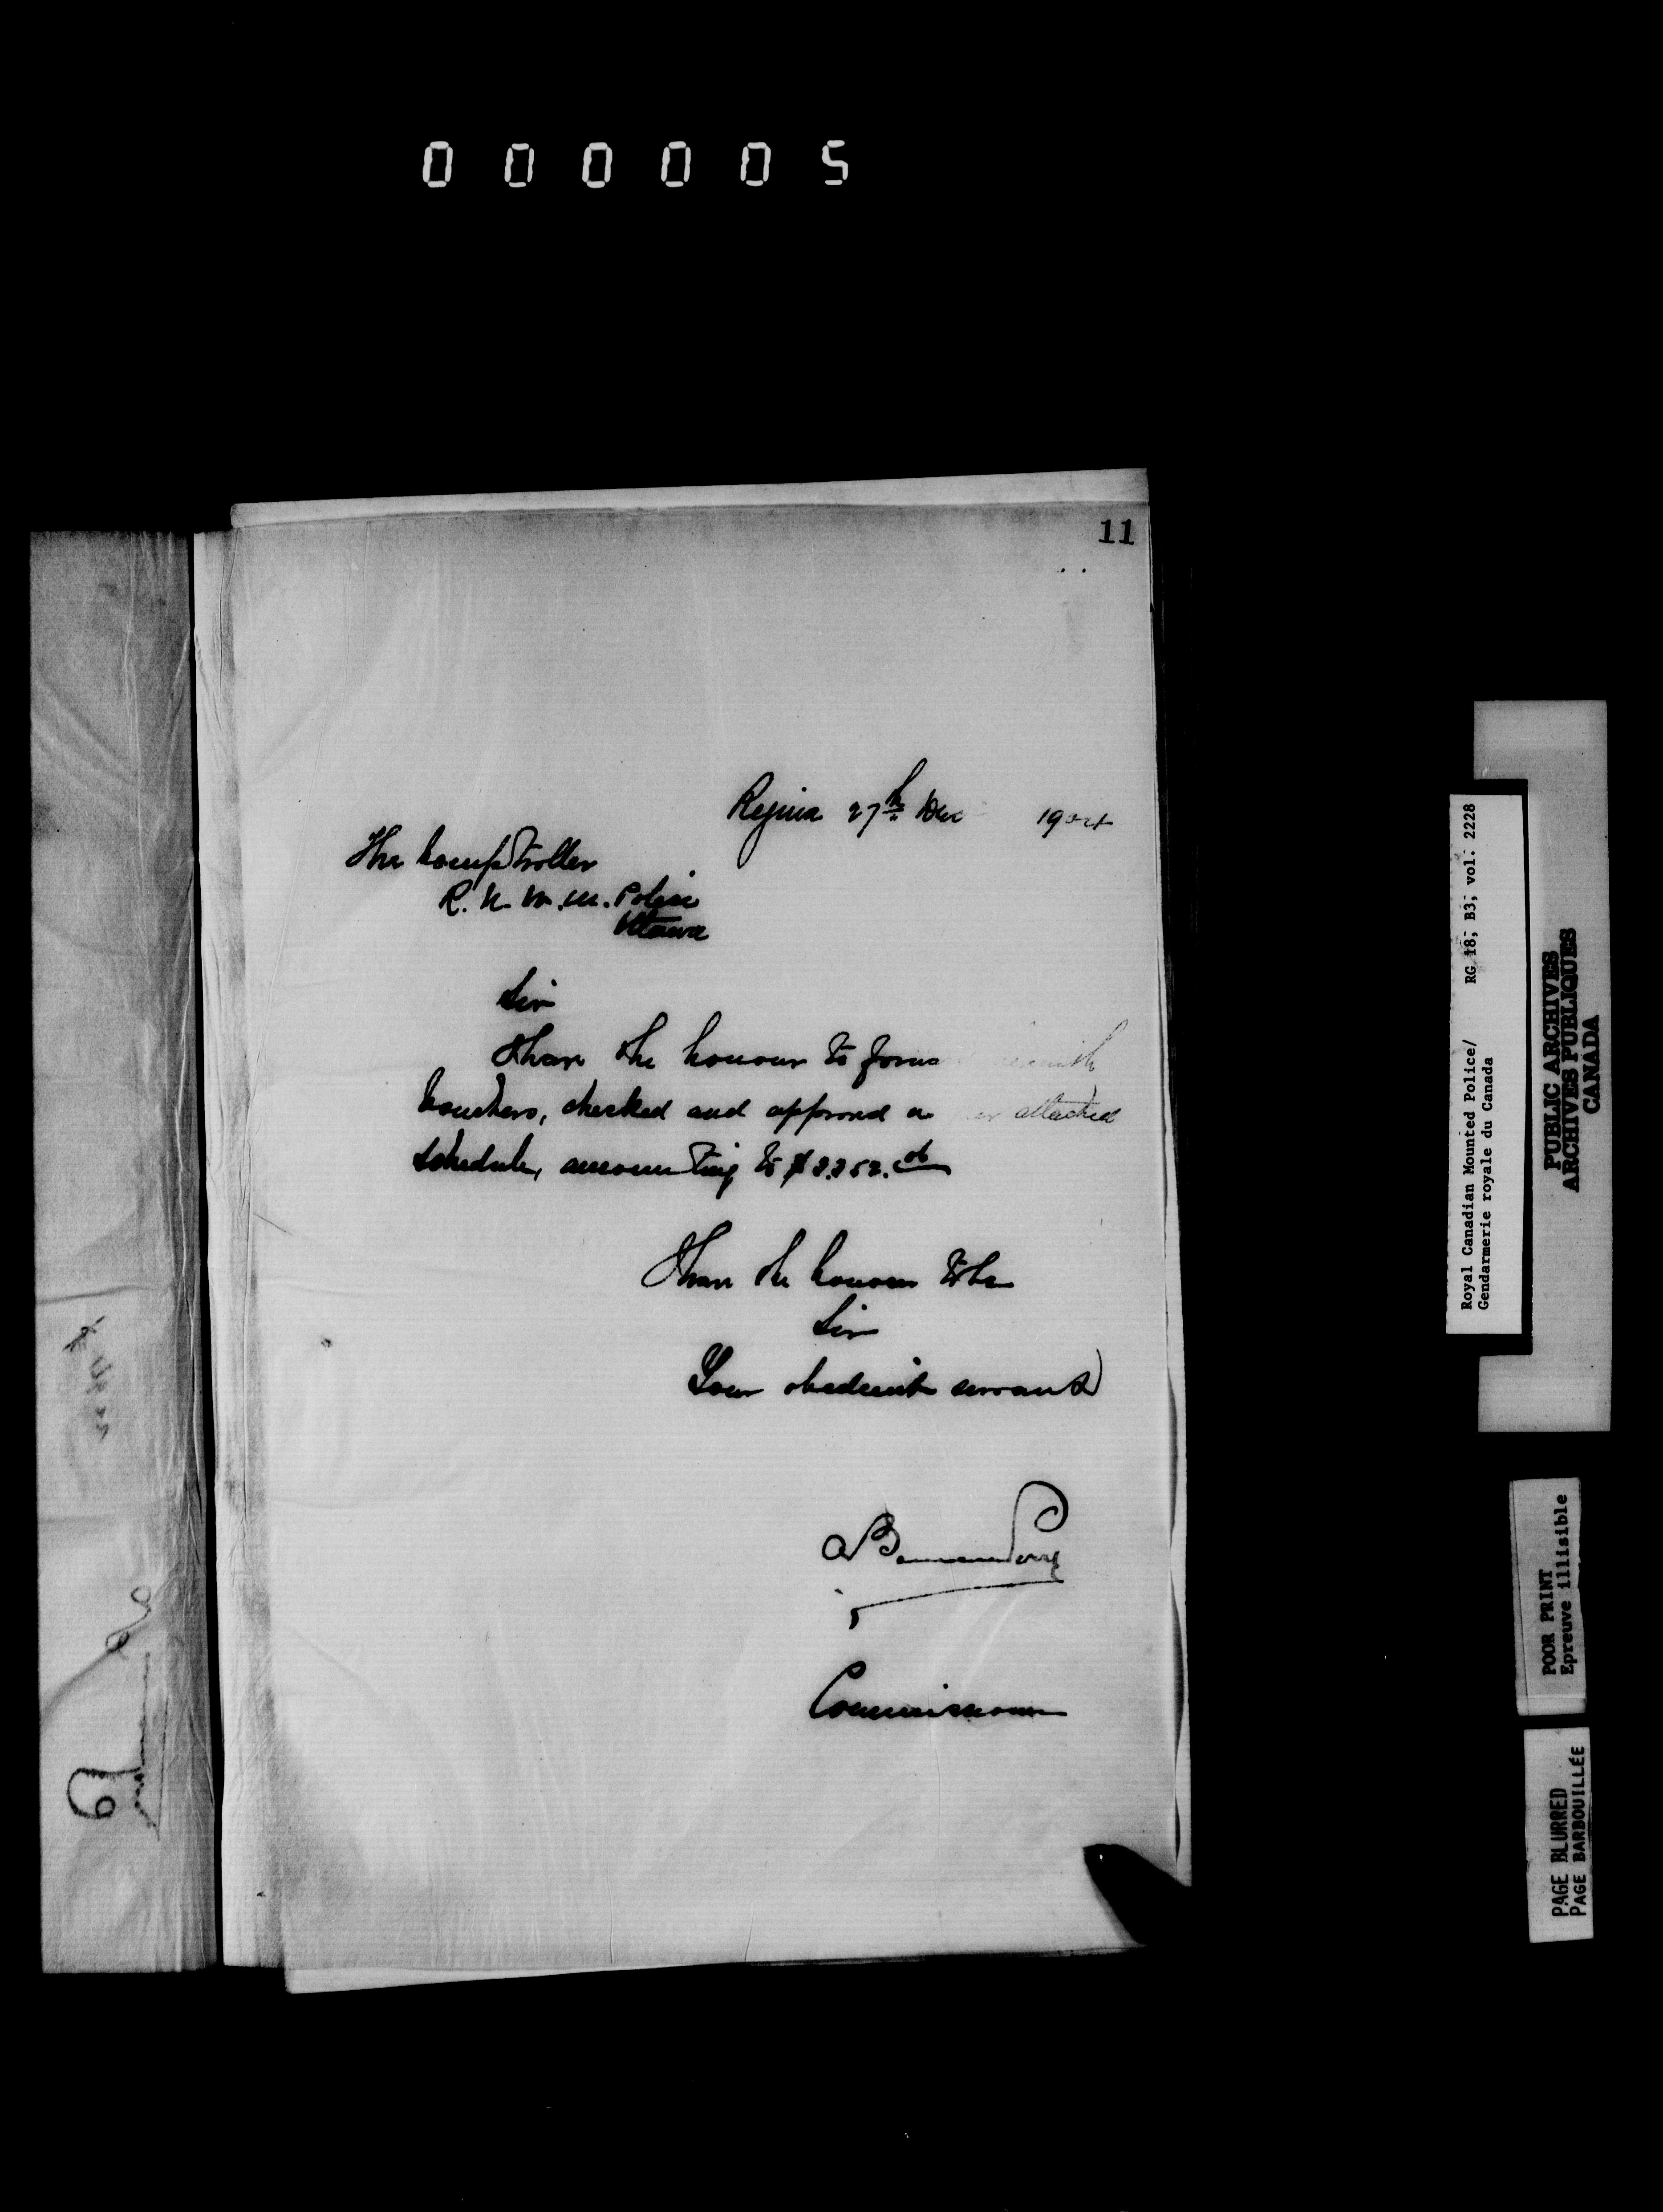 0 0 0 0 0 5
11
Regina 27th Dec 1904
The Comptroller
R. N. W. M. Police
Ottawa
Sir
I have the honour to forw
Vouchers, checked and approved attached
Schedule, amounting to
I have the honour to be
Sir
Your obedient servant
A Bowen Perry
Commissioner
Royal Canadian Mounted Police/ RG 18, B3, vol. 2228
Gendarmerie royale du Canada
PUBLIC ARCHIVES
ARCHIVES PUBLIQUES
CANADA
POOR PRINT
Epreuve illisible
PAGE BLURRED
PAGE BARBOUILLÉE